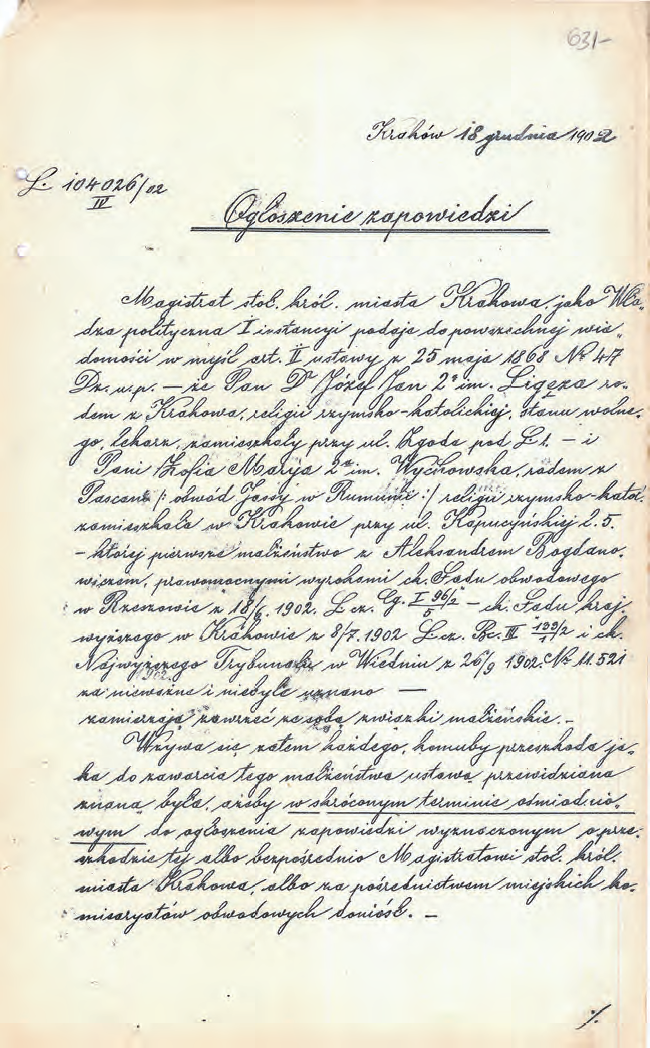 631-
Kraków 18 grudnia 1902
L. 104026/02
IV
Ogłoszenie zapowiedzi
Magistrat stoł. król. miasta Krakowa, jako Wła„
dza polityczna I instancyi podaje do powszechnej wia„
domości w myśl art. II ustawy z 25 maja 1868 Nr 47
Dz. u. p. — że Pan Dr Józef Jan 2ga im. Ligęza ro„
dem z Krakowa, religii rzymsko-katolickiej, stanu wolne„
go, lekarz, zamieszkały przy ul. Zgoda pod L 1. — i
Pani Zofia Marya 2ga im. Wychowska, rodem z
Pascani /: obwód Jassy w Rumunii :/ religii rzymsko-katol.
zamieszkała w Krakowie przy ul. Kapucyńskiej L. 5.
- której pierwsze małżeństwo z Aleksandrem Bogdano„
wiczem, prawomocnymi wyrokami ck. Sądu obwodowego
w Rzeszowie z 18/6 1902. L cz. Cg. I 96/2/5 — ck. Sądu kraj.
wyższego w Krakowie z 8/7. 1902 L cz. Bc. III 139/2/1 i ck.
Najwyższego Trybunału w Wiedniu z 26/9 1902. Nr 11.521
za nieważne i niebyłe uznano —
zamierzają zawrzeć ze sobą związki małżeńskie. —
Wzywa się zatem każdego, komuby przeszkoda ja„
ka do zawarcia tego małżeństwa ustawą przewidziana
znaną była, ażeby w skróconym terminie ośmiodnio„
wym do ogłoszenia zapowiedzi wyznaczonym o prze„
szkodzie tej albo bezpośrednio Magistratowi stoł. król.
miasta Krakowa, albo za pośrednictwem miejskich ko„
misaryatów obwodowych doniósł. —
·/.